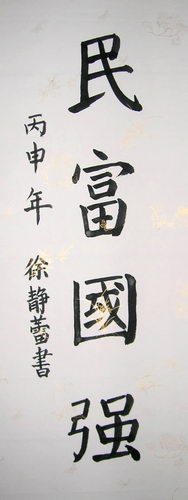 民富國强
丙申年 徐静蕾書